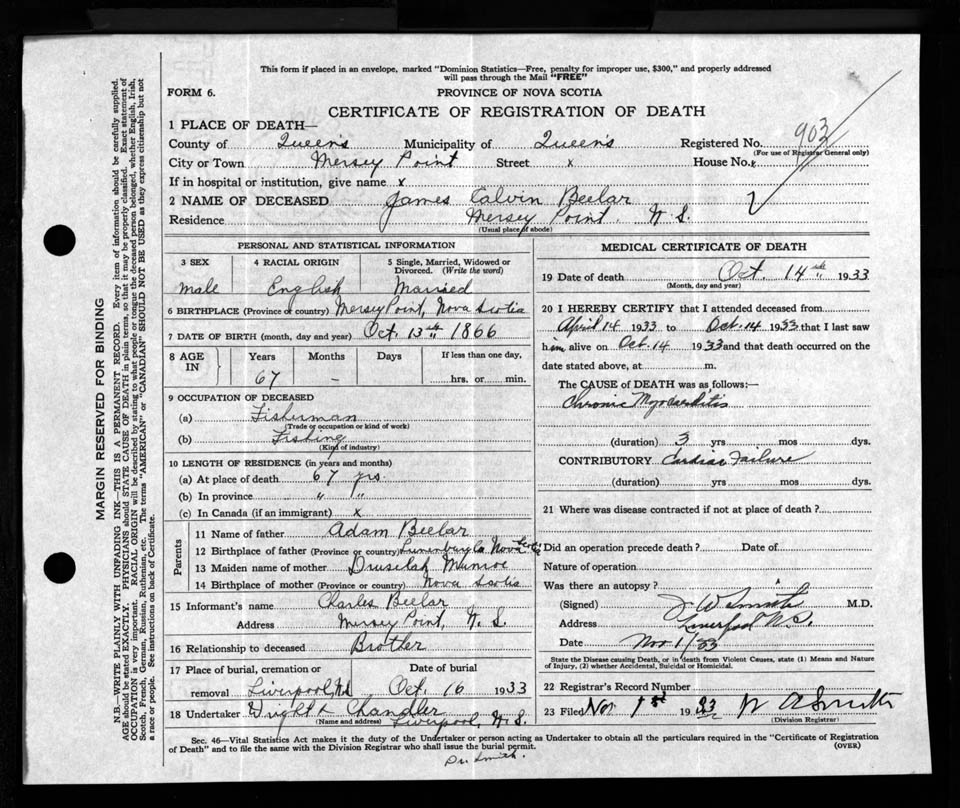 This form if placed in an envelope, marked "Dominion Statistics—Free, penalty for improper use, $300," and properly addressed
will pass through the Mail "FREE"
FORM 6.
PROVINCE OF NOVA SCOTIA
CERTIFICATE OF REGISTRATION OF DEATH
1 PLACE OF DEATH—
County of Queen's Municipality of Queen's Registered No. 903
(For use of Registrar General only)
City or Town Mersey Point Street x House No. x
If in hospital or institution, give name x
2 NAME OF DECEASED James Calvin Beelar
Residence Mersey Point. N.S.
(Usual place of abode)
PERSONAL AND STATISTICAL INFORMATION
3 SEX
male
4 RACIAL ORIGIN
English
5 Single, Married, Widowed or
Divorced. (Write the word)
Married
6 BIRTHPLACE (Province or country) Mersey Point, Nova Scotia
7 DATE OF BIRTH (month, day and year) Oct. 13th 1866
8 AGE
IN
Years
67
Months
—
Days
If less than one day,
hrs. or min.
9 OCCUPATION OF DECEASED
(a) Fisherman
(Trade or occupation or kind of work)
(b) Fishing
(Kind of industry)
10 LENGTH OF RESIDENCE (in years and months)
(a) At place of death 67 yrs.
(b) In province " "
(c) In Canada (if an immigrant) x
Parents
11 Name of father Adam Beelar
12 Birthplace of father (Province or country) Lunenburg Co Nova Scotia
13 Maiden name of mother Drusilah Munroe
14 Birthplace of mother (Province or country) Nova Scotia
15 Informant's name Charles Beelar
Address Mersey Point, N. S.
16 Relationship to deceased Brother
17 Place of burial, cremation or Date of burial
removal Liverpool, NS Oct. 16 1933
18 Undertaker Wright & Chandler
(Name and address) Liverpool, N. S.
MEDICAL CERTIFICATE OF DEATH
19 Date of death Oct. 14th 1933
(Month, day and year)
20 I HEREBY CERTIFY that I attended deceased from
April 14 1933 to Oct. 14 1933 that I last saw
him alive on Oct 14 1933 and that death occurred on the
date stated above, at m.
The CAUSE of DEATH was as follows:—
Chronic Myocarditis
(duration) 3 yrs mos dys.
CONTRIBUTORY Cardiac Failure
(duration) yrs. mos. dys.
21 Where was disease contracted if not at place of death?
Did an operation precede death? Date of
Nature of operation
Was there an autopsy?
(Signed) J W Smith M.D.
Address Liverpool N.S.
Date Nov 1/33
State the Disease causing Death, or in death from Violent Causes, state (1) Means and Nature
of Injury, (2) whether Accidental, Suicidal or Homicidal.
22 Registrar's Record Number
23 Filed Nov 1st 1933 W A Smith
(Division Registrar)
Sec. 46—Vital Statistics Act makes it the duty of the Undertaker or person acting as Undertaker to obtain all the particulars required in the "Certificate of Registration
of Death" and to file the same with the Division Registrar who shall issue the burial permit.
(OVER)
Dr. Smith.
MARGIN RESERVED FOR BINDING
N.B.—WRITE PLAINLY WITH UNFADING INK—THIS IS A PERMANENT RECORD. Every item of information should be carefully supplied.
AGE should be stated EXACTLY. PHYSICIANS should STATE CAUSE OF DEATH in plain terms, so that it may be properly classified. Exact statement of
OCCUPATION is very important. RACIAL ORIGIN will be described by stating to what people or tongue the deceased person belonged, whether English, Irish,
Scotch, French, German, Russian, Ruthenian, etc. The terms "AMERICAN" or "CANADIAN" SHOULD NOT BE USED as they express citizenship but not
a race or people. See instructions on back of Certificate.